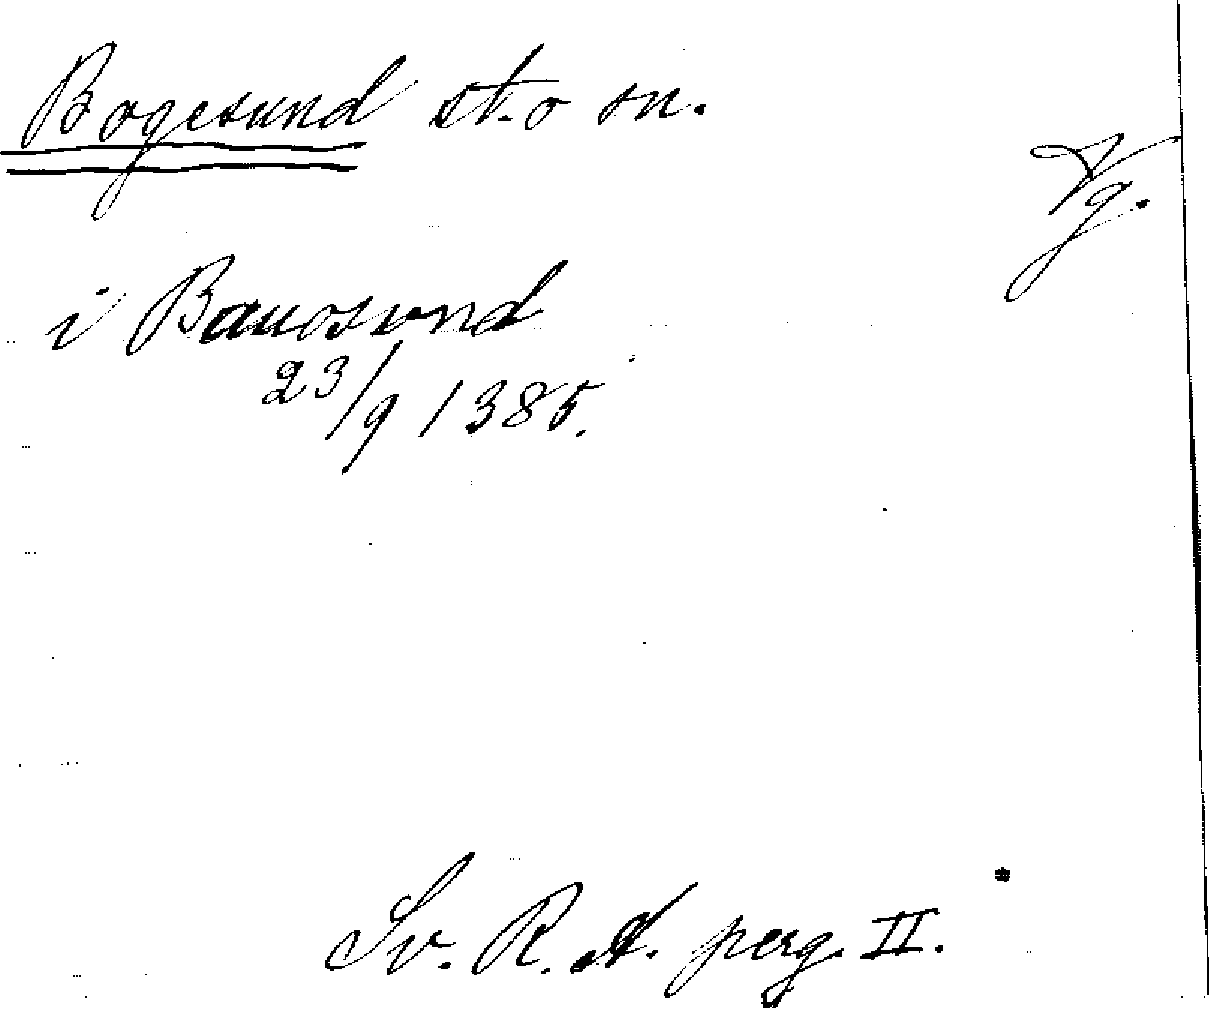 Bogesund st. o sn.
Vg.
i Bauosund
23/9 1385.
Sv. R. A. perg. II.